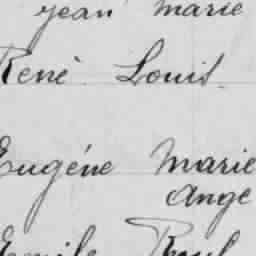 jean marie
René Louis
Eugéne Marie
Ange
Emile Paul